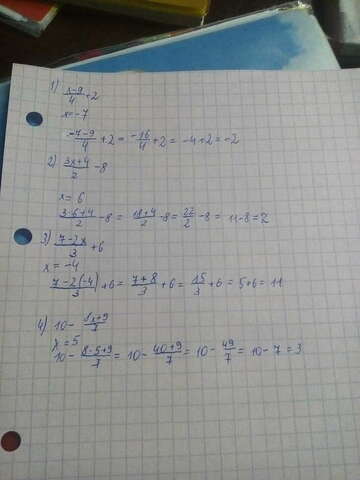 1) (x-9)/4 + 2
x = -7
(-7-9)/4 + 2 = -16/4 + 2 = -4+2 = -2
2) (3x+4)/2 - 8
x = 6
(3·6+4)/2 - 8 = (18+4)/2 - 8 = 22/2 - 8 = 11-8 = 2
3) (7-2x)/3 + 6
x = -4
(7-2(-4))/3 + 6 = (7+8)/3 + 6 = 15/3 + 6 = 5+6 = 11
4) 10 - (8x+9)/7
x = 5
10 - (8·5+9)/7 = 10 - (40+9)/7 = 10 - 49/7 = 10-7 = 3